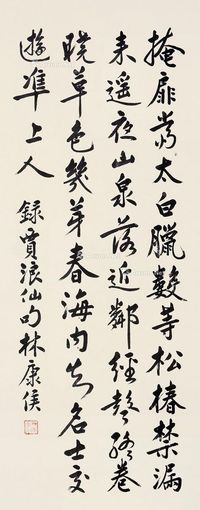 掩扉當太白臘數等松椿禁漏
来遥夜山泉落近鄰經聲終卷
曉草色幾芽春海内知名士交
遊準上人 録賈浪仙句林康侯